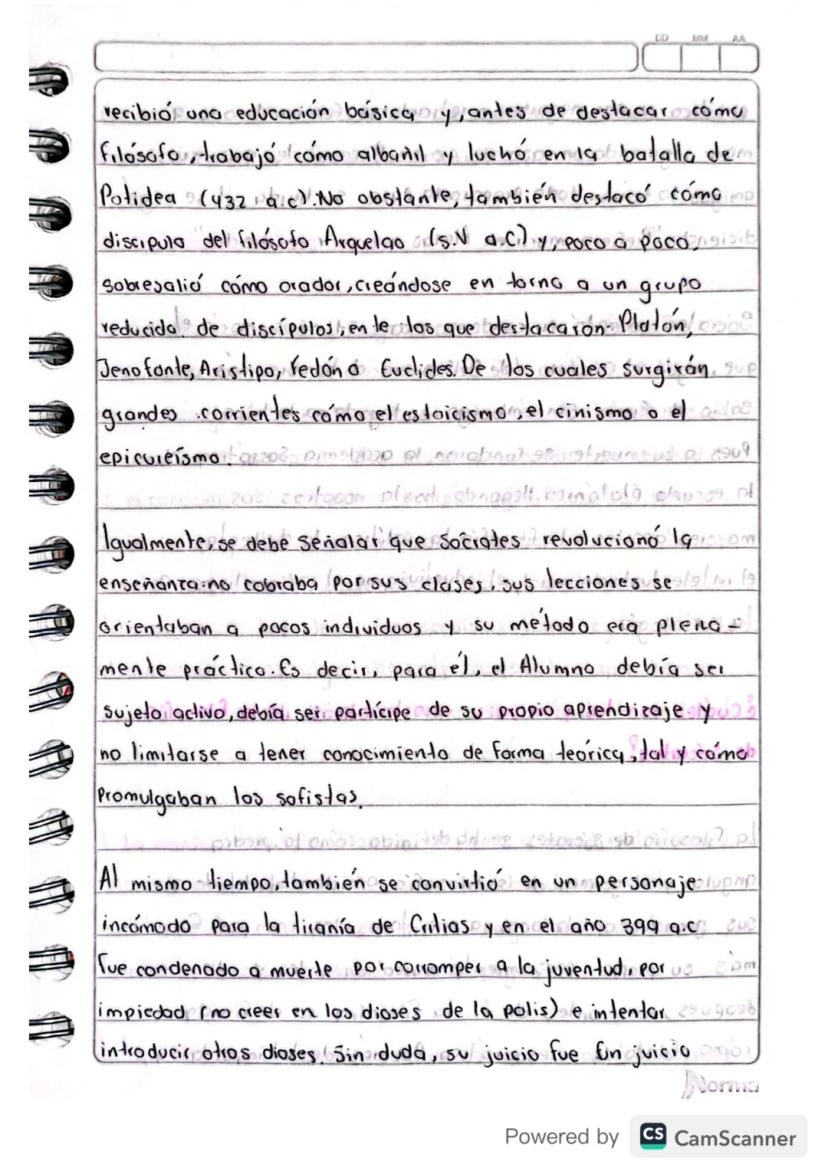 DD MM AA
recibió una educación básica y, antes de destacar cómo
filósofo, trabajó cómo albañil y luchó en la batalla de
Potidea (432 a.c). No obstante, también destacó cómo
discipulo del filósofo Arquelao (s.V a.C) y, poco a poco,
sobresalió cómo orador, creándose en torno a un grupo
reducido de discípulos, entre los que destacarón Platón,
Jenofonte, Aristipo, Fedón o Euclides. De los cuales surgirán
grandes corrientes cómo el estoicismo, el cinismo o el
epicureísmo.
Igualmente, se debe señalar que Socrates revolucionó la
enseñanza: no cobraba por sus clases, sus lecciones se
orientaban a pocos individuos y su método era plena-
mente práctico. Es decir, para él, el Alumno debía ser
sujeto activo, debía ser partícipe de su propio aprendizaje y
no limitarse a tener conocimiento de forma teórica, tal y cómo
promulgaban los sofistas.
Al mismo tiempo, también se convirtió en un personaje
incómodo para la tiranía de Critias y en el año 399 a.c
fue condenado a muerte por corromper a la juventud, por
impiedad (no creer en los dioses de la polis) e intentar
introducir otros dioses. Sin duda, su juicio fue un juicio
Norma
Powered by CS CamScanner